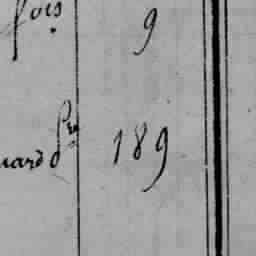 fois 9
uard 189